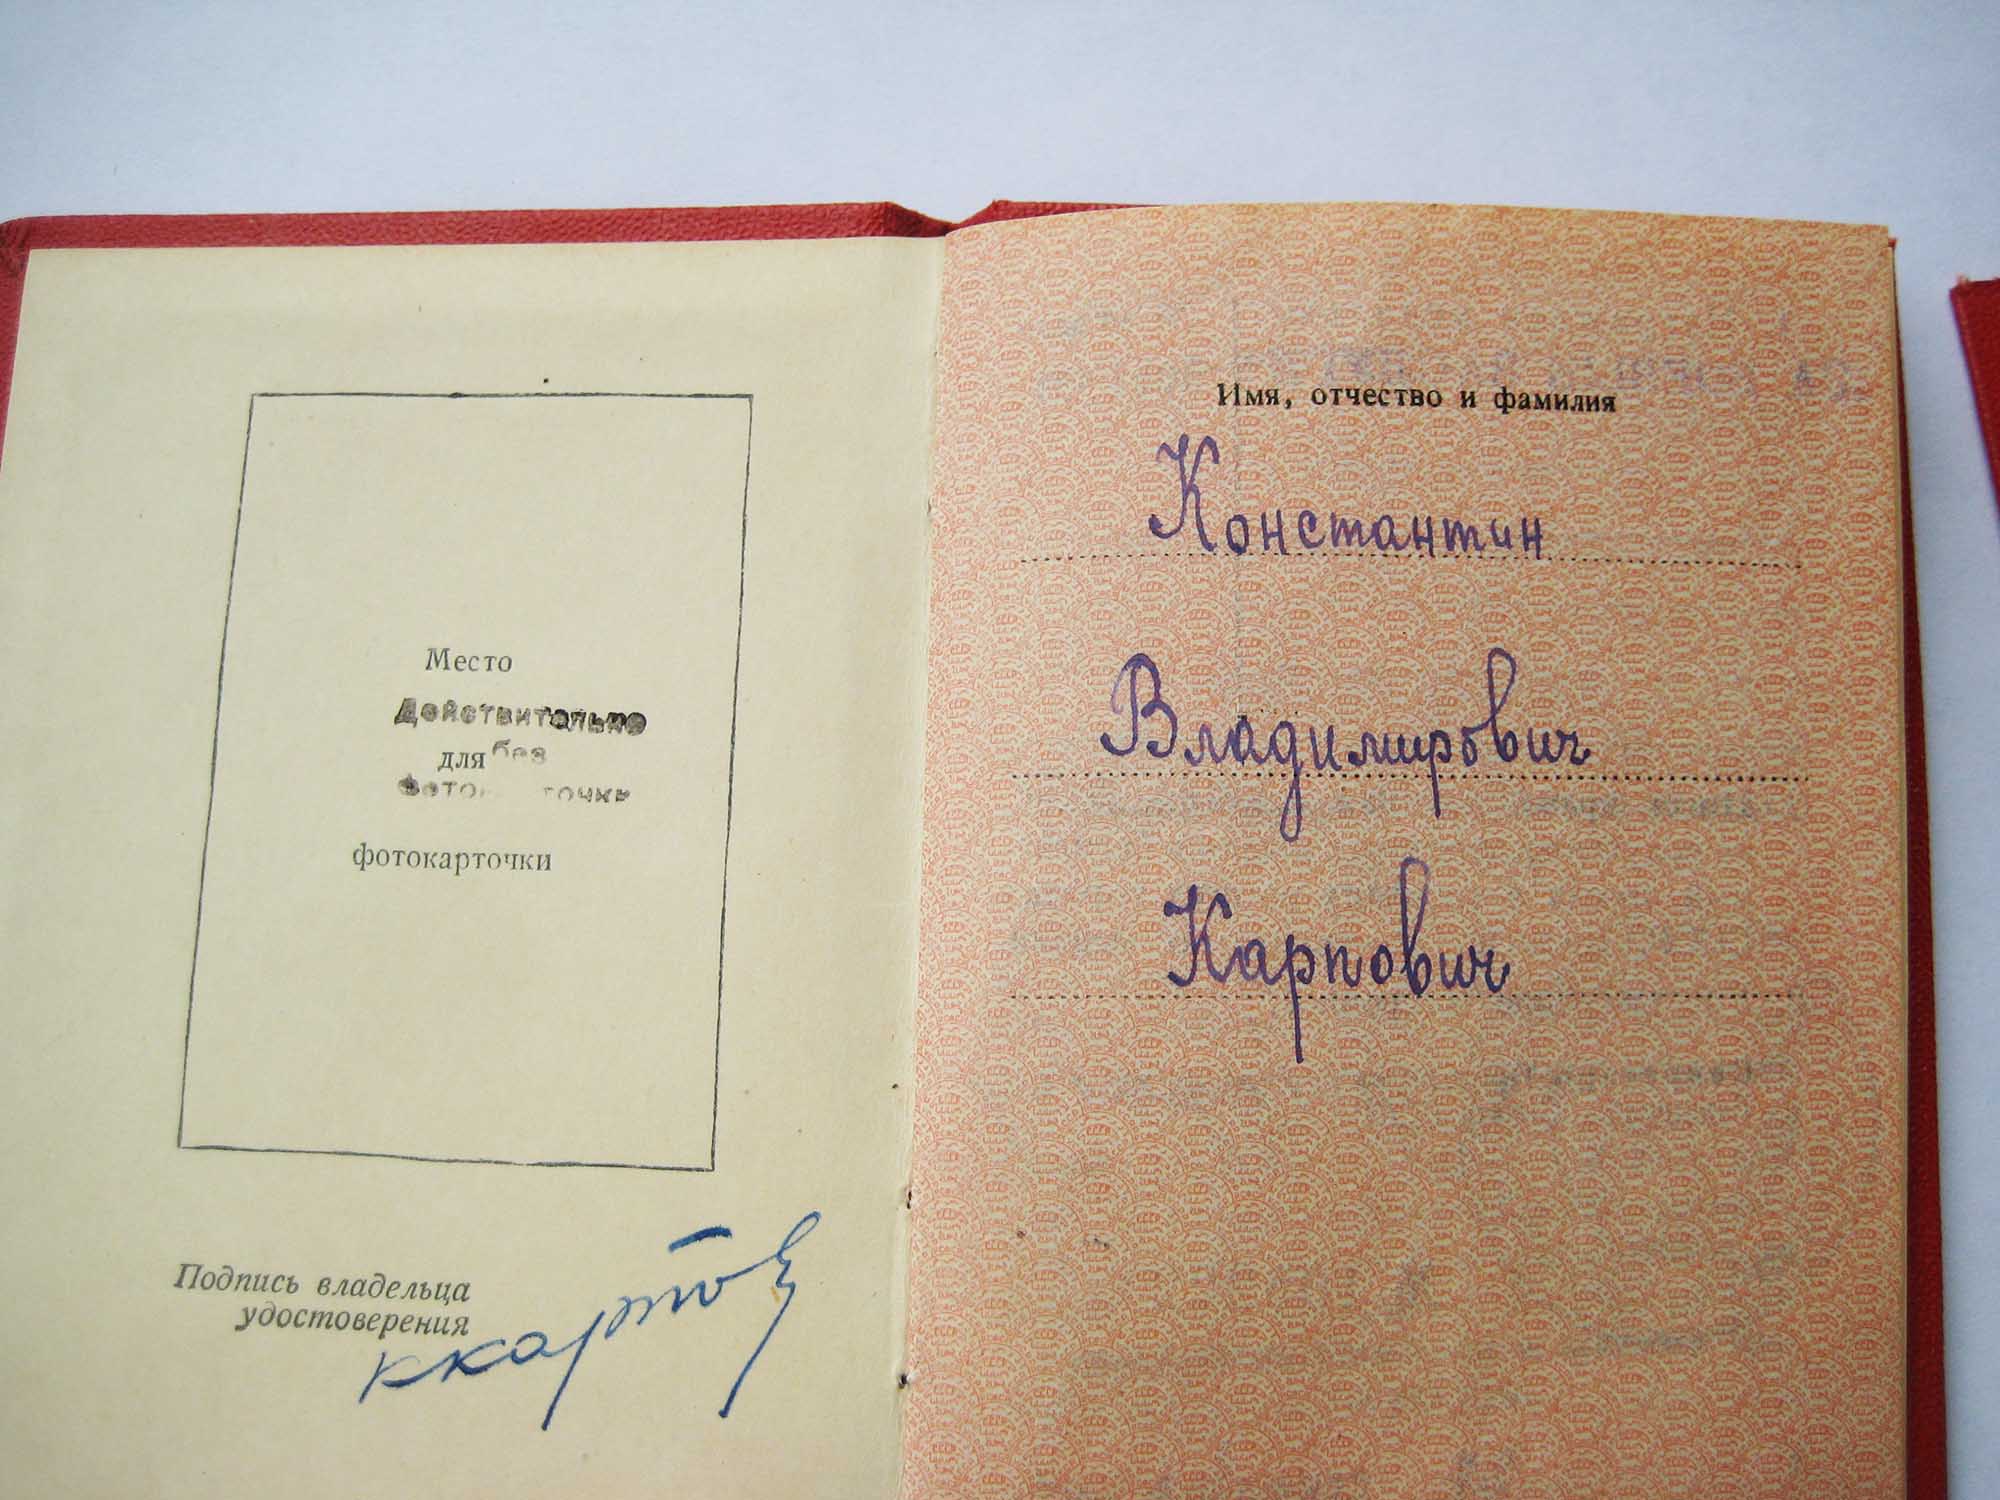 Место
Действительно
для без
фотокарточки
Подпись владельца
удостоверения
Имя, отчество и фамилия
Константин
Владимирович
Карпович